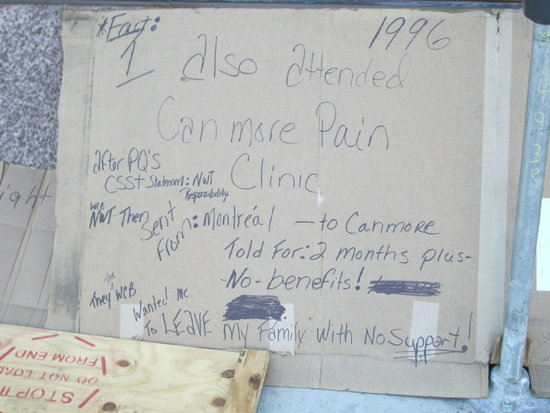 *Fact: 1996
I also attended
Canmore Pain
Clinic
after PQ's
CSST Statement: NWT
Responsibility
WCB
NWT Then Sent From: Montréal — to Canmore
Told For: 2 months plus-
-No-benefits!
The
They WCB Wanted me
To LEAVE My Family With No Support!
ight
STOP !!
DO NOT LOAD
FROM END